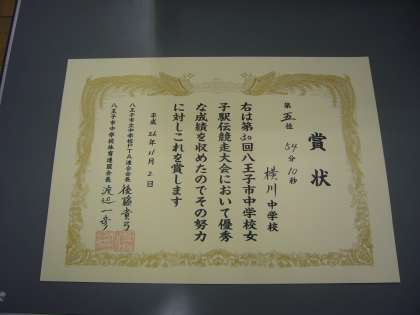 賞状
第五位
54分10秒
横川中学校
右は第30回八王子市中学校女
子駅伝競走大会において優秀
な成績を収めたのでその努力
に対しこれを賞します
平成26年11月2日
八王子市立中学校PTA連合会長 後藤貴弓
八王子市中学校体育連盟会長 渡辺一彦